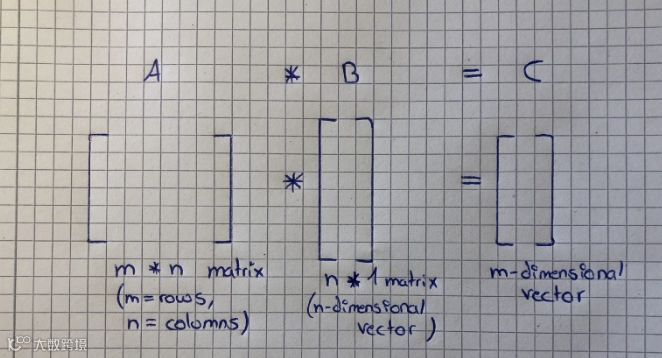 A * B = C
* =
m * n matrix
(m=rows,
n = colomns)
n * 1 matrix
(n-dimensional
vector)
m-dimensional
vector
大数跨境